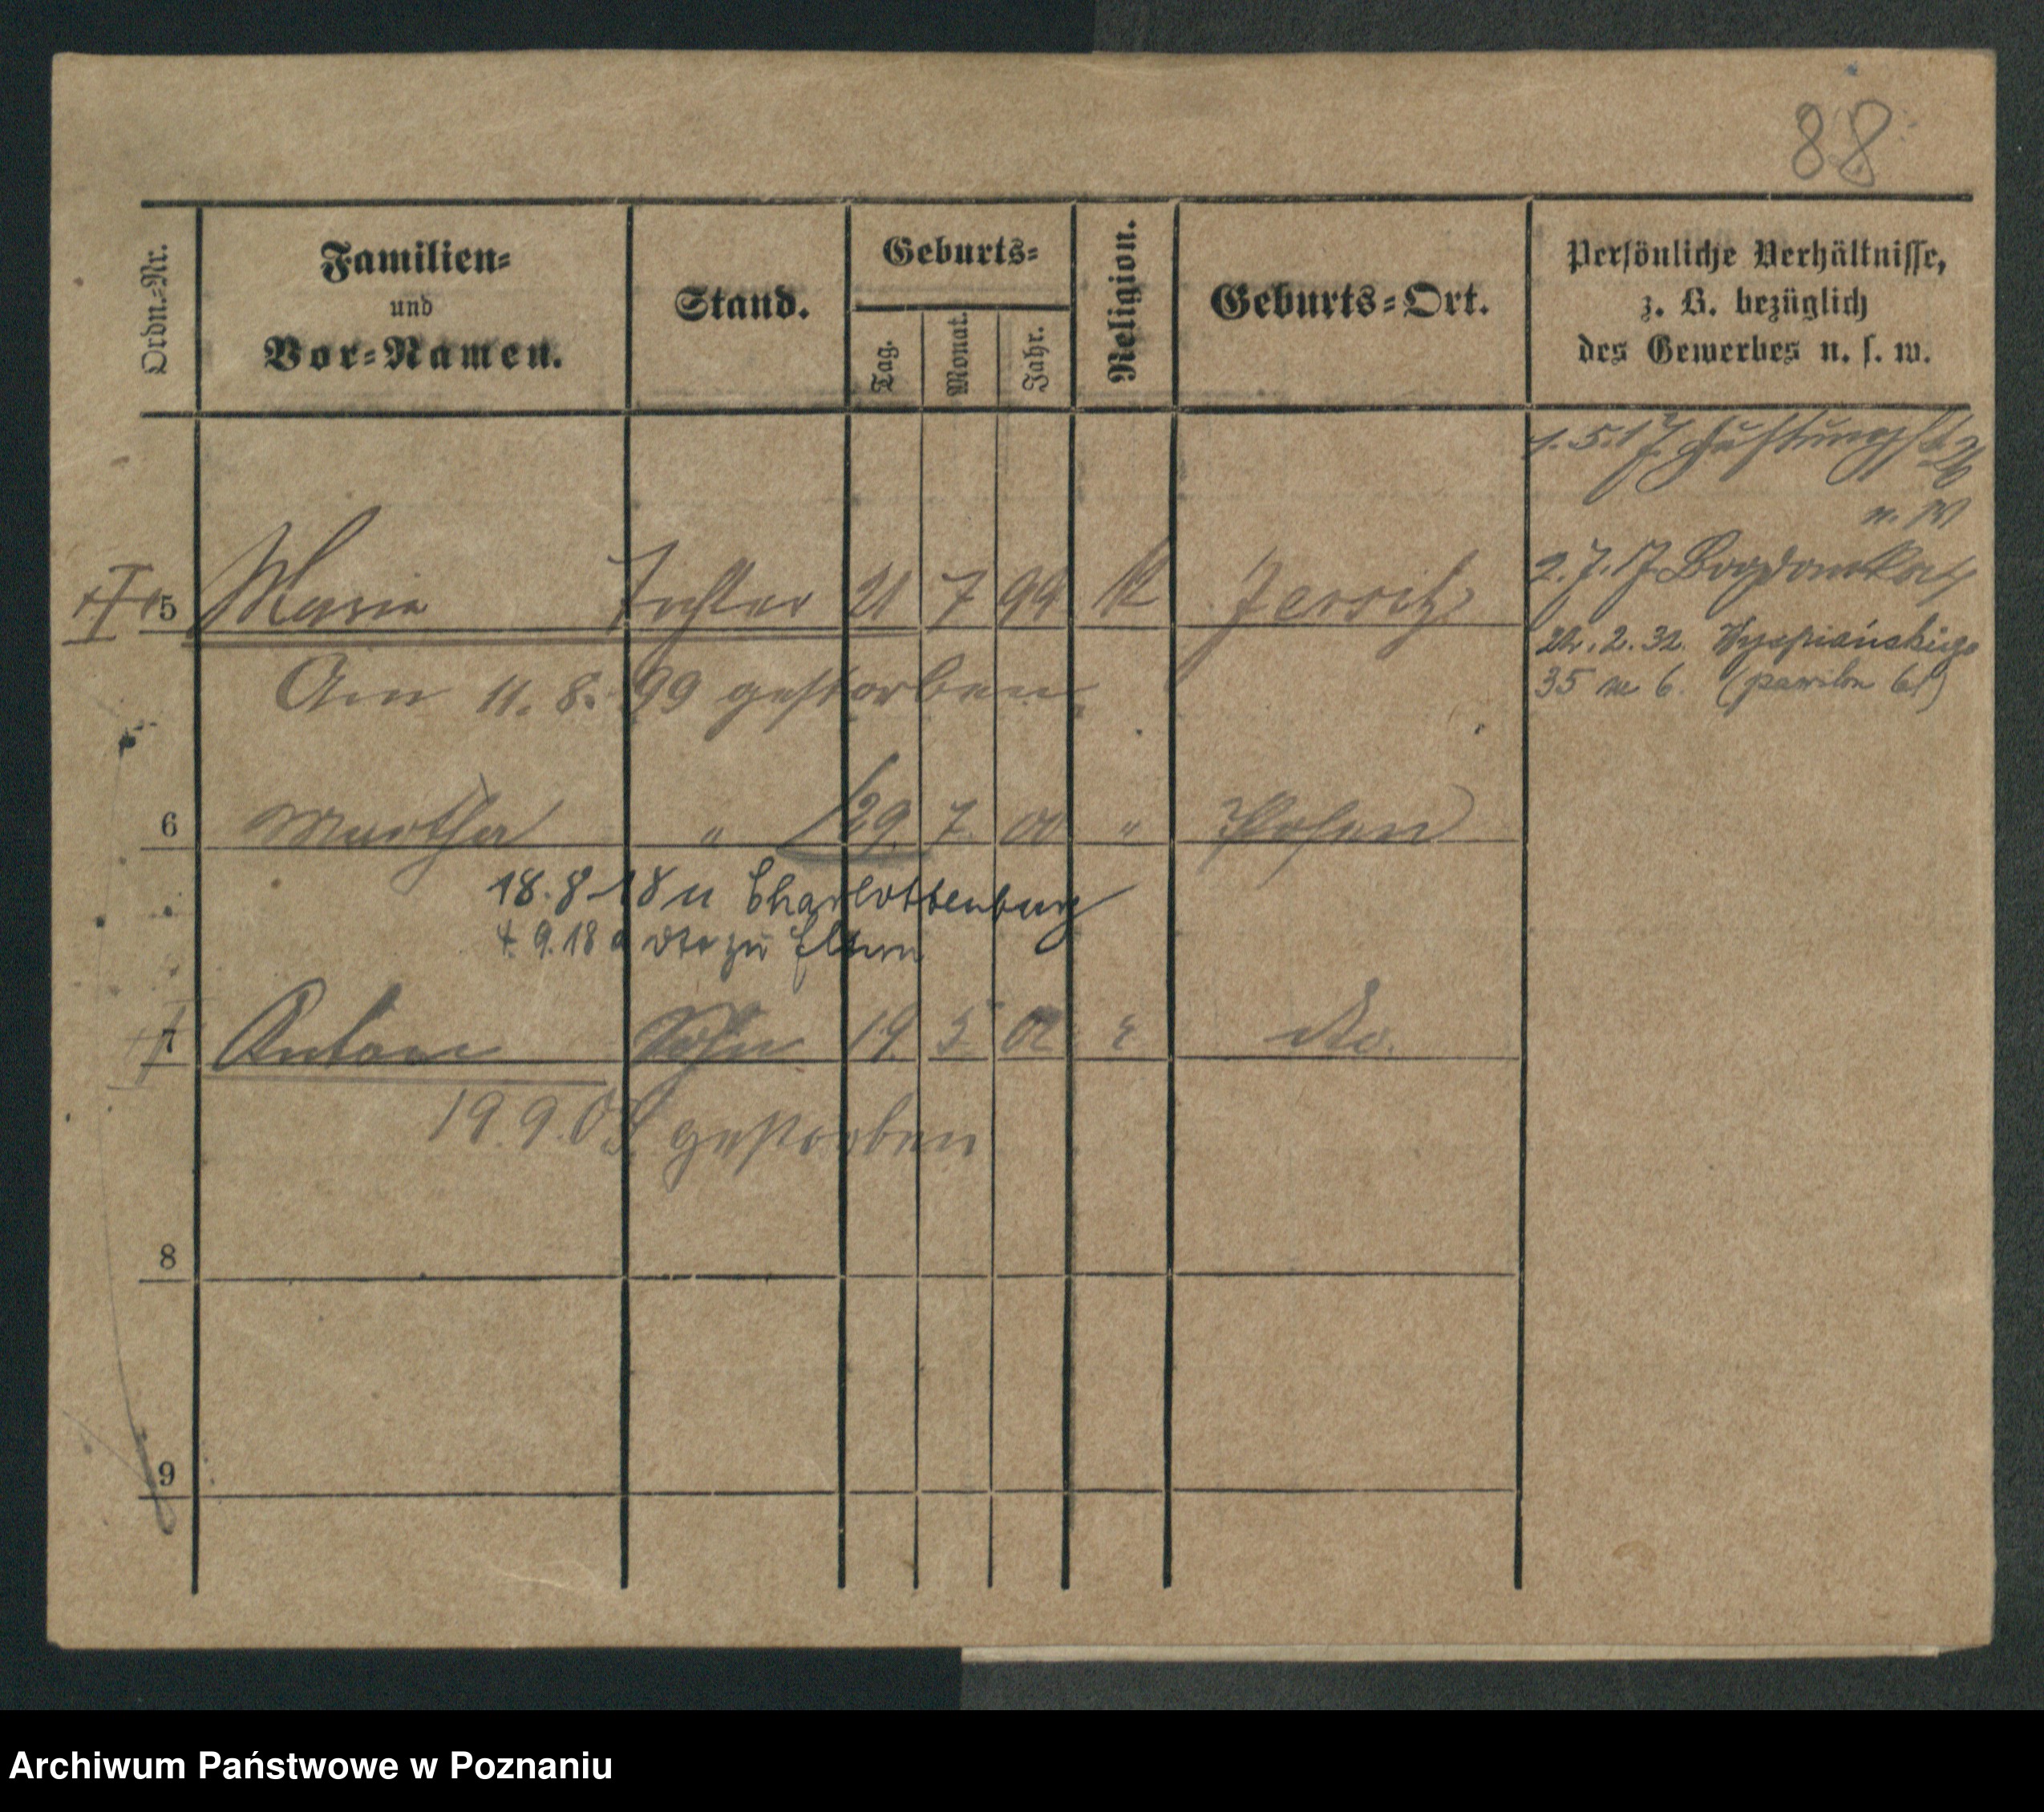 88
Ordn.-Nr.
Familien-
und
Vor-Namen.
Stand.
Geburts-
Tag.
Monat.
Jahr.
Religion.
Geburts-Ort.
Persönliche Verhältnisse,
z. B. bezüglich
des Gewerbes u. s. w.
1.5.17
2.7.17
5 Maria Tochter 21 7 99 K Jersitz
24.2.32. Wyspiańskiego
35 m 6. (pawilon 61)
Am 11.8.99 gestorben
6 Martha " 29. 7. 00 " Posen
18.8.18 n Charlottenburg
9.18 dto zu Eltern
7 Anton Sohn 19. 5 02 dto.
19.9.02 gestorben
8
9
Archiwum Państwowe w Poznaniu